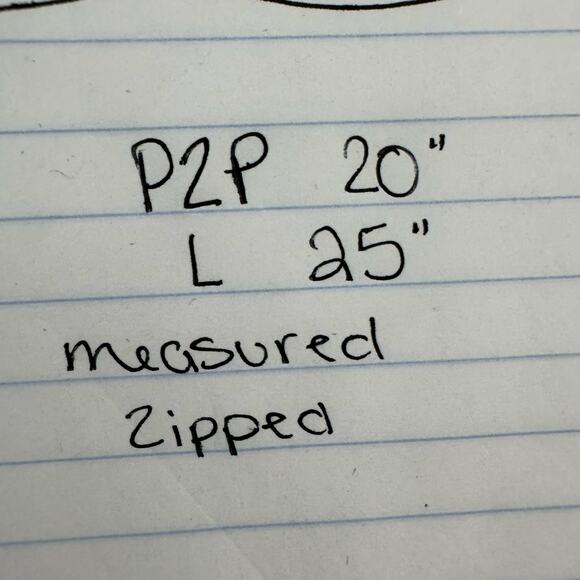 P2P 20"
L 25"
measured
zipped